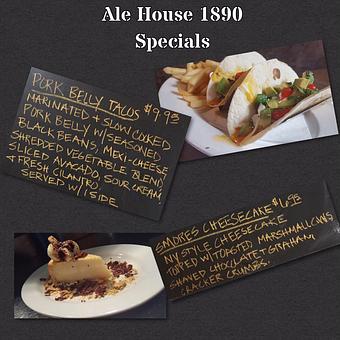 Ale House 1890
Specials
PORK BELLY TACOS $9.93
MARINATED + SLOW COOKED
PORK BELLY W/ SEASONED
BLACK BEANS, MEXI-CHEESE
SHREDDED VEGETABLE BLEND
SLICED AVACADO, SOUR CREAM
+ FRESH CILANTRO
SERVED W/ 1 SIDE
SMORES CHEESECAKE $6.93
NY STYLE CHEESECAKE
TOPPED W/ TOASTED MARSHMALLOWS
SHAVED CHOCOLATE + GRAHAM
CRACKER CRUMBS.